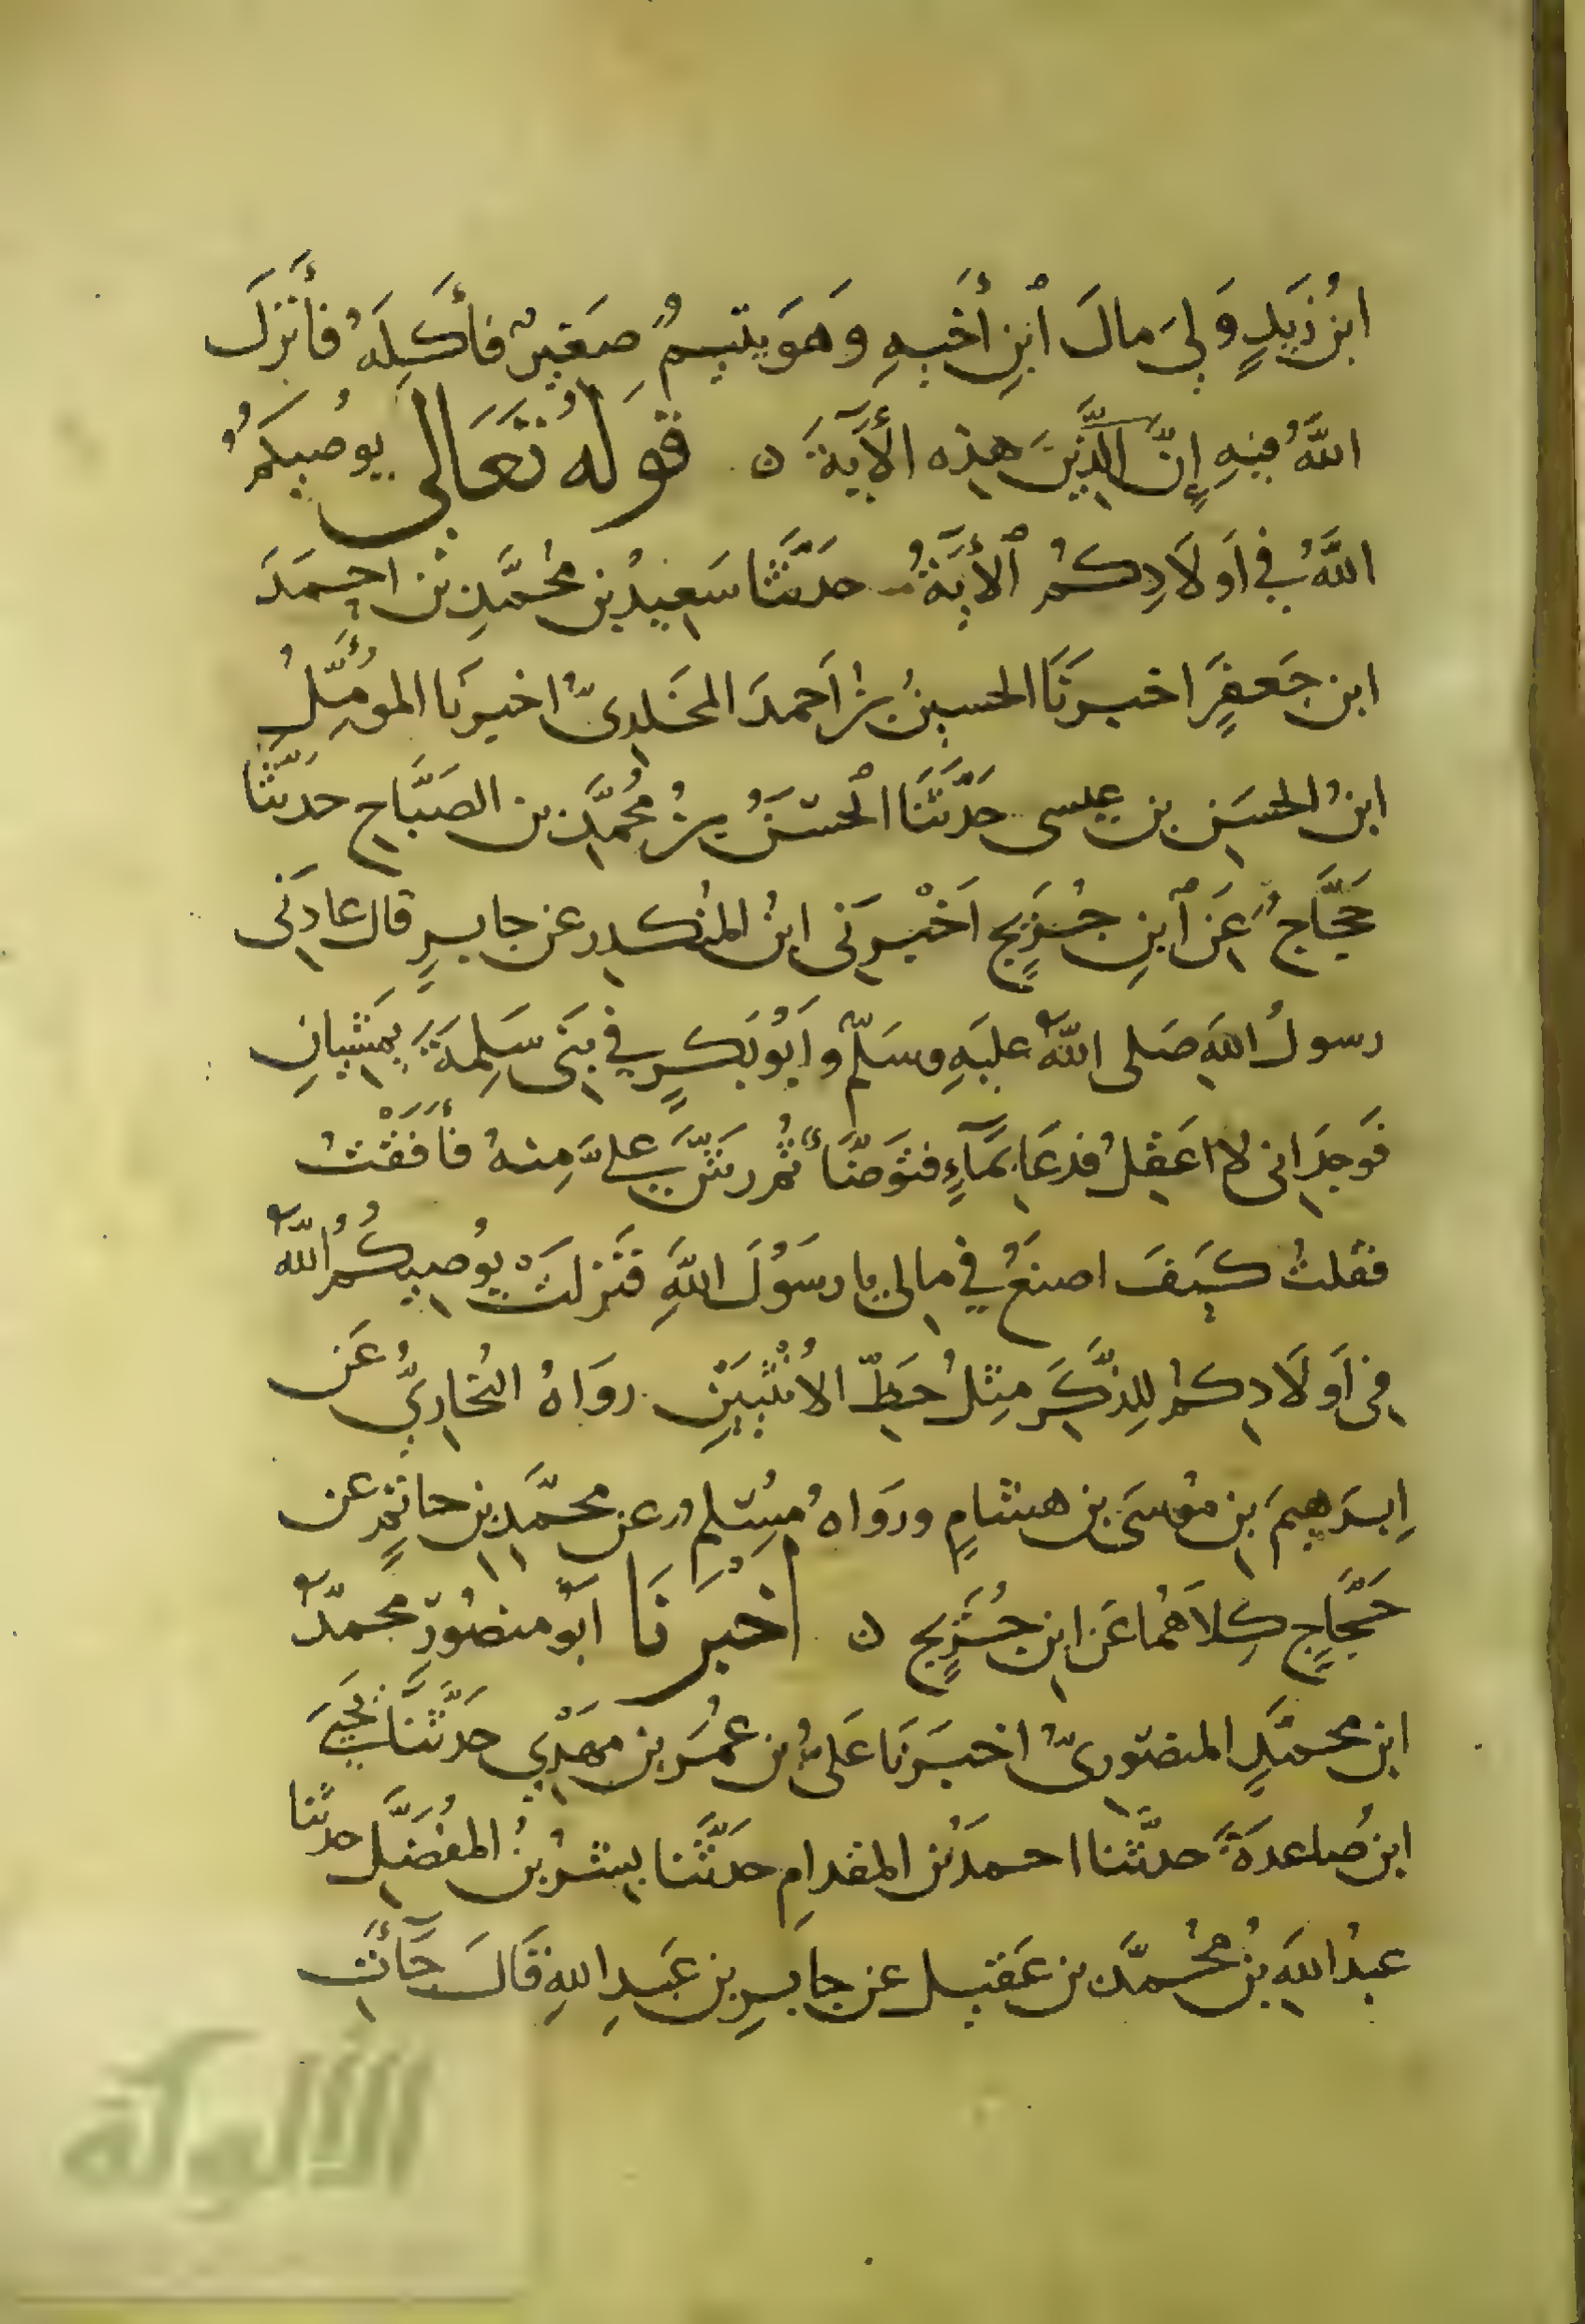 ابنُ زَيدٍ وَلِيَ مالَ ٱبنِ أخَيهِ وَهوَ يتيمٌ صَغِيرٌ فأكَلَهُ فأنزلَ
اللَّهُ فيهِ إنَّ الَّذِينَ هذه الأيَةَ ٥ قولهُ تَعَالى يوُصيكمُ
اللَّهُ في اَولَادِكمُ ٱلأيَةُ حدَّثَنا سَعيدُ بن محُمَّدِ بن احمَدَ
ابن جَعفرٍَ اخبرَنَا الحسينُ بنُ اَحمدَ المخَلدِىُّ اخبرَنا المومَّلُ
ابنُ الحسَنِ بن عيسى حَدَّثَنَا الحسَنُ بنُ محُمَّدِ بن الصَبَّاحِ حدثَّنا
حَجَّاجٌ عَن ٱبنِ جُرَيجٍ اَخْبرنَى ابنُ المنُكدرِ عن جابرٍ قال عادَنِى
رسولُ اللهِ صَلى اللَّهُ عليَهِ وسَلّمَ وَابَوُبَكرٍ في بنَى سَلِمَةَ يمَشيانِ
فَوجَدَانى لا اعَقِلُ فدعَا بمَآءٍ فتوَضّأَ ثُم رَشَّ علىَّ مِنهُ فأفَقْتُ
فقلتُ كيَفَ اصنعُ في مالى يا رسَوُلَ اللهِ فنَزلَتْ يوُصيكُمُ اللَّهُ
في اَولَادِكمُ للِذَّكَرِ مثِلُ حَظِّ الأنُثَيَينِ رواَهُ البُخارِيُّ عَن
اِبرَهِيمَ بنِ موُسىَ بن هشامٍ ورَواهُ مسُلم عن محمَّدِ بن حاتمٍ عن
حَجَّاجٍ كِلاهَمُا عَن ابنِ جُرَيجٍ ٥ اخبَرنَا ابَوُ منصُورٍ محمدُّ
ابن محمَّدٍ المنصُورىُّ اخبَرنَا عَلىُّ بن عُمَرَ بن مَهْدِي حدَّثَنَا يحَيىَ
ابن صُاعدةَ حدثَّنا احمدَُ بن المقدامِ حدَّثَنا بِشرُ بنُ المفُضَّلِ حدثنا
عبدُ اللهِ بنُ محُمَّدِ بن عَقيل عن جابِرِ بن عَبدِ اللهِ قَالَ جَآءَت
الألوكة